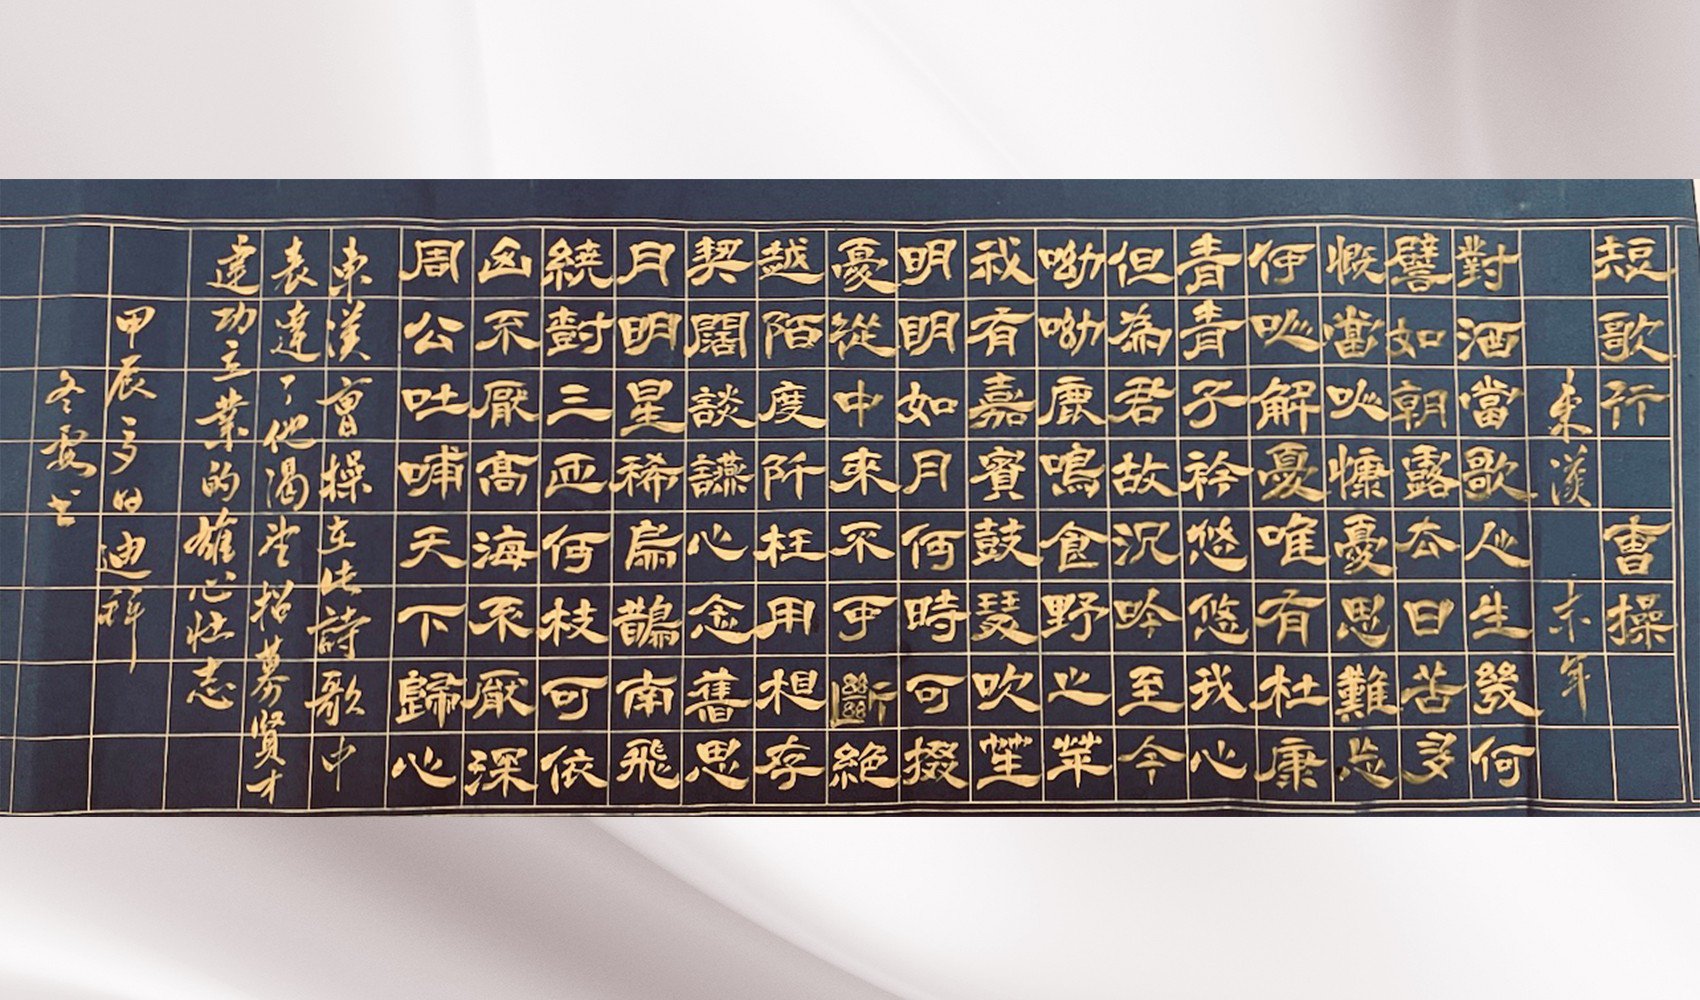 短歌行 曹操
東漢 末年
對酒當歌人生幾何
譬如朝露去日苦多
慨當以慷憂思難忘
何以解憂唯有杜康
青青子衿悠悠我心
但為君故沉吟至今
呦呦鹿鳴食野之苹
我有嘉賓鼓瑟吹笙
明明如月何時可掇
憂從中來不可斷絕
越陌度阡枉用相存
契闊談讌心念舊恩
月明星稀烏鵲南飛
繞樹三匝何枝可依
山不厭高海不厭深
周公吐哺天下歸心
東漢曹操在此詩歌中
表達了他渴望招募賢才
建功立業的雄心壯志
甲辰 日迪祥
冬 书